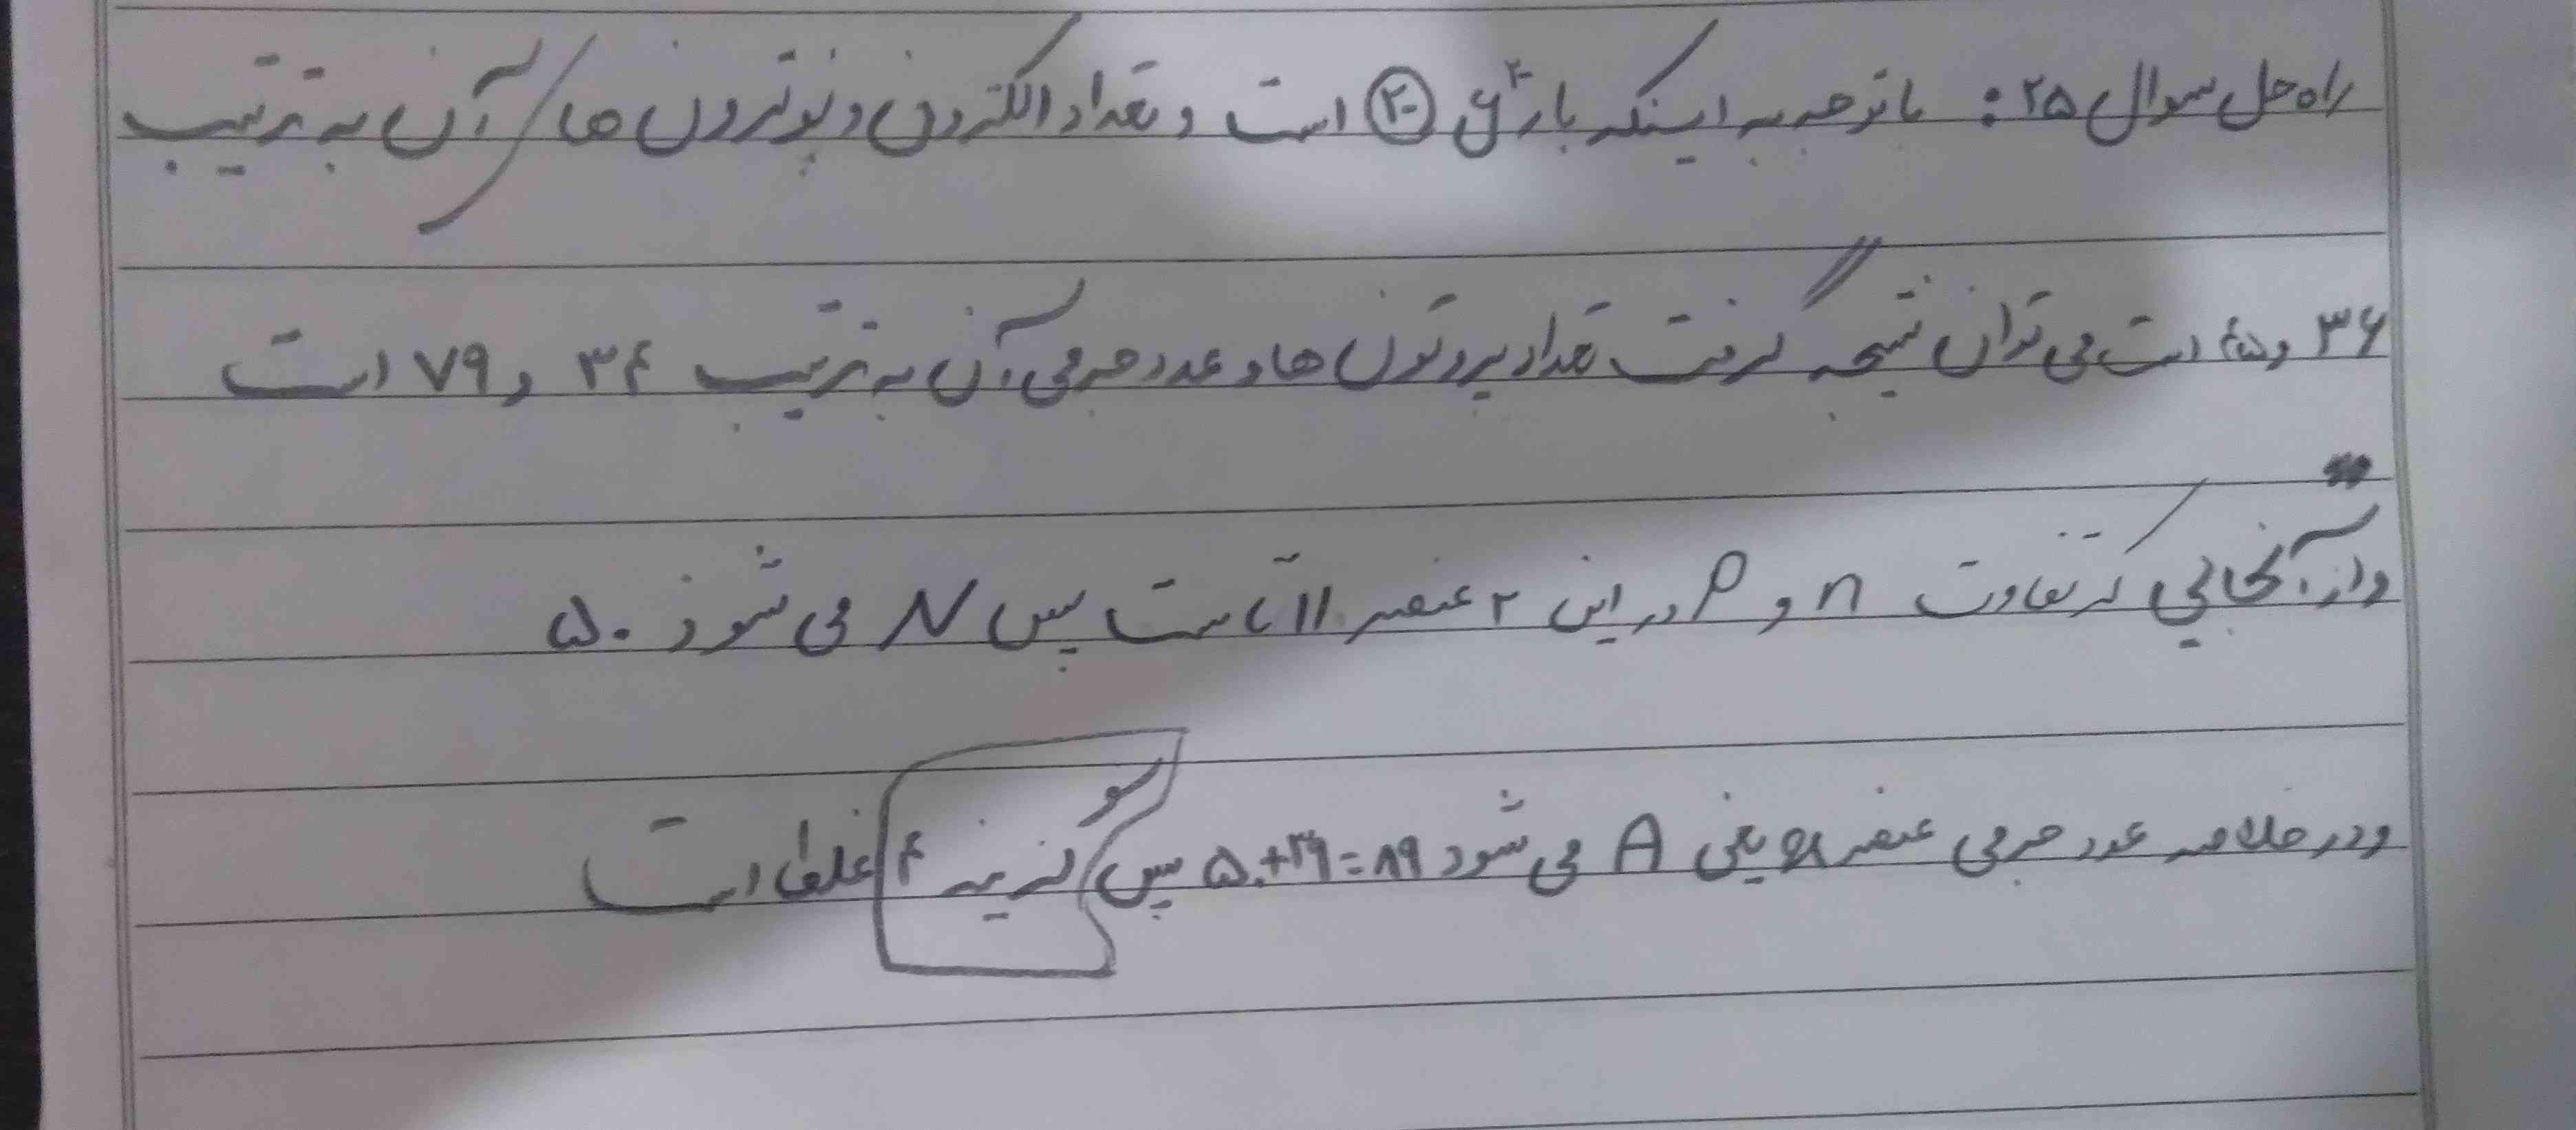 راه حل سوال ۲۵: با توجه به اینکه بار y²⁻ (۲-) است و تعداد الکترون و نوترون های آن به ترتیب
۳۶ و ۴۵ است می توان نتیجه گرفت تعداد پروتون ها و عدد جرمی آن به ترتیب ۳۴ و ۷۹ است
و از آنجایی که تفاوت n و p در این ۲ عنصر ۱۱ تاست پس N می شود ۵۰
و در خلاصه عدد جرمی عنصر یعنی A می شود ۵۰+۳۹=۸۹ پس گزینه ۴ غلط است